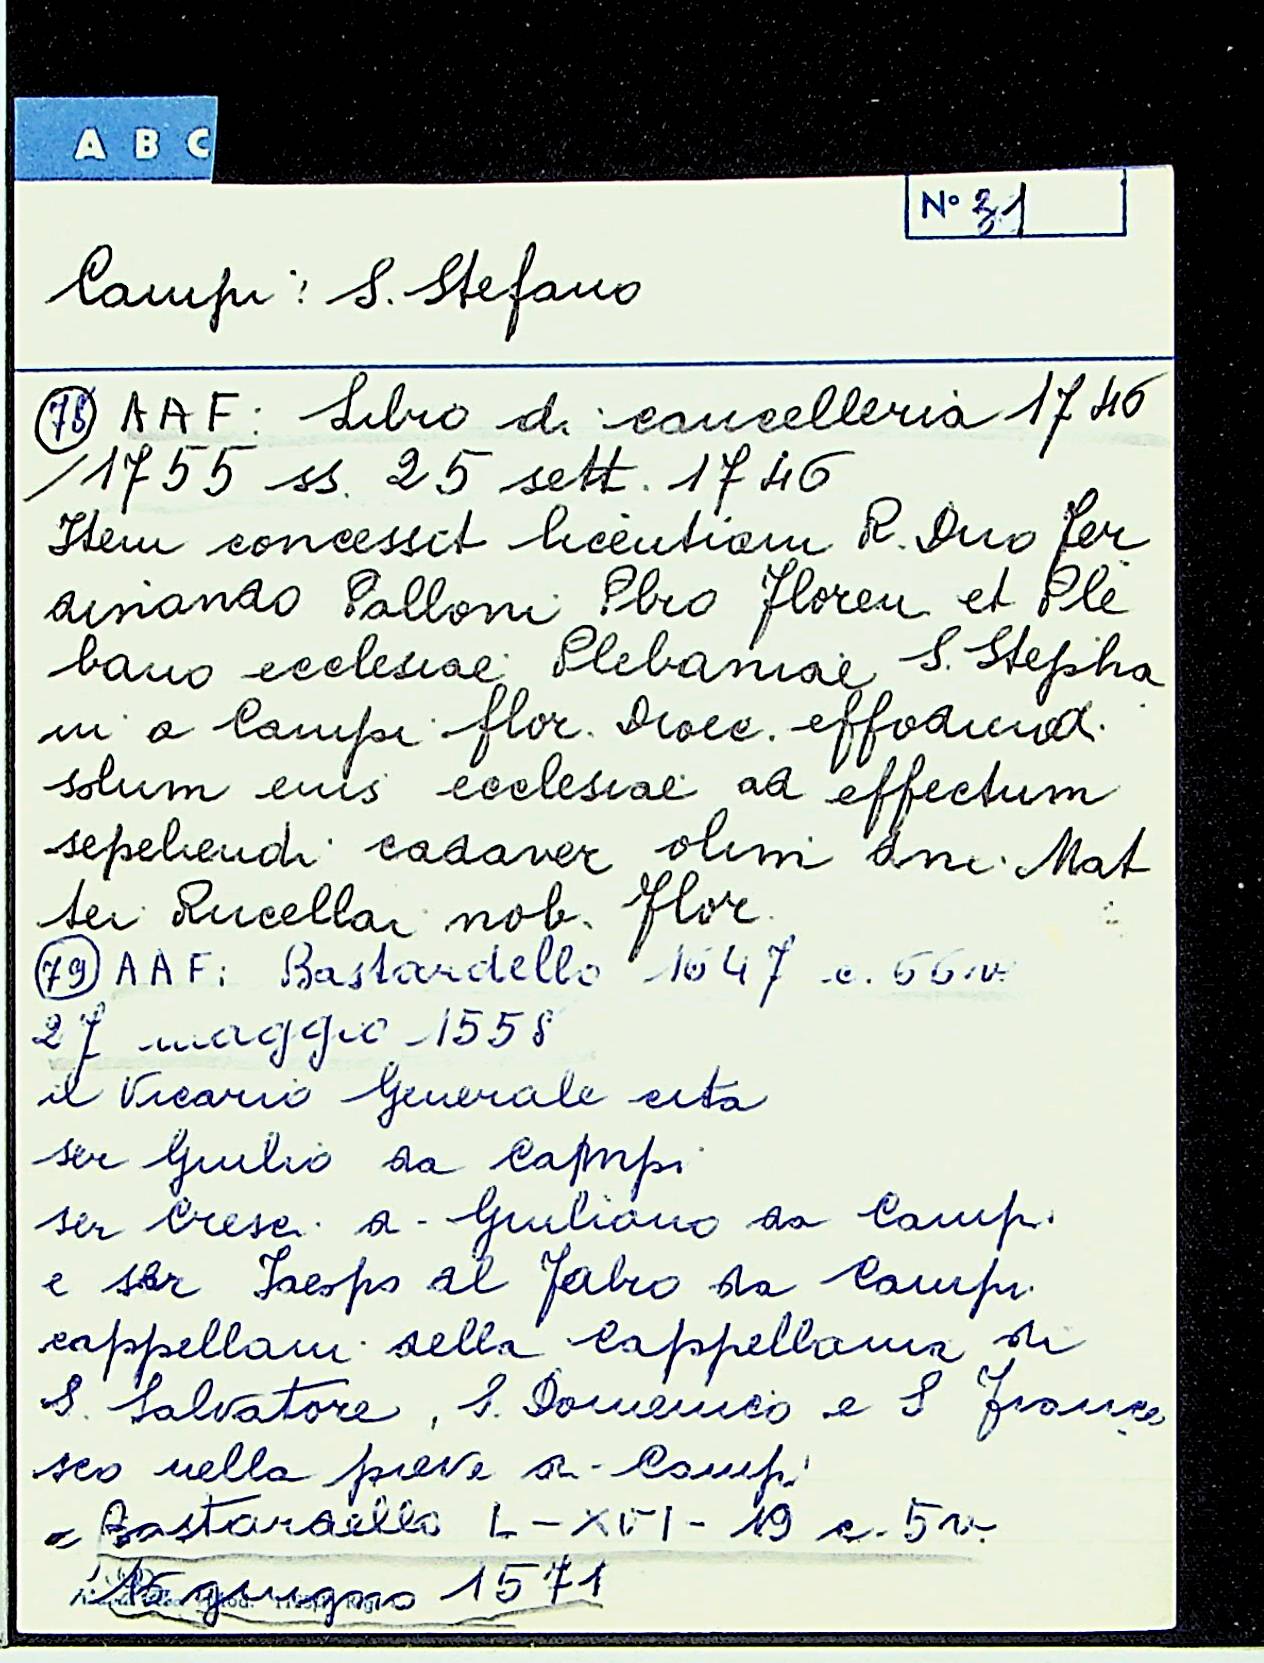 A B C
N° 31
Campi: S. Stefano
78 AAF: Libro di cancelleria 1746
/1755 ss. 25 sett. 1746
Item concessit licentiam R. Dno Fer
dinando Palloni Pbro Floren et Ple
bano ecclesiae Plebaniae S. Stepha
ni a Campi flor. Dioec. effodiend.
solum eius ecclesiae ad effectum
sepeliendi cadaver olim dni Mat
tei Rucellai nob. Flor.
79 AAF: Bastardello 1647 c. 66v.
27 maggio 1558
il Vicario Generale cita
ser Giulio da Campi
ser Cresci di Giuliano da Campi
e ser del Fabro da Campi
cappellani della Cappellania di
S. Salvatore, S. Domenico e S France
sco nella pieve di Campi
= Bastardello L-XVI-19 c. 5v.
giugno 1571